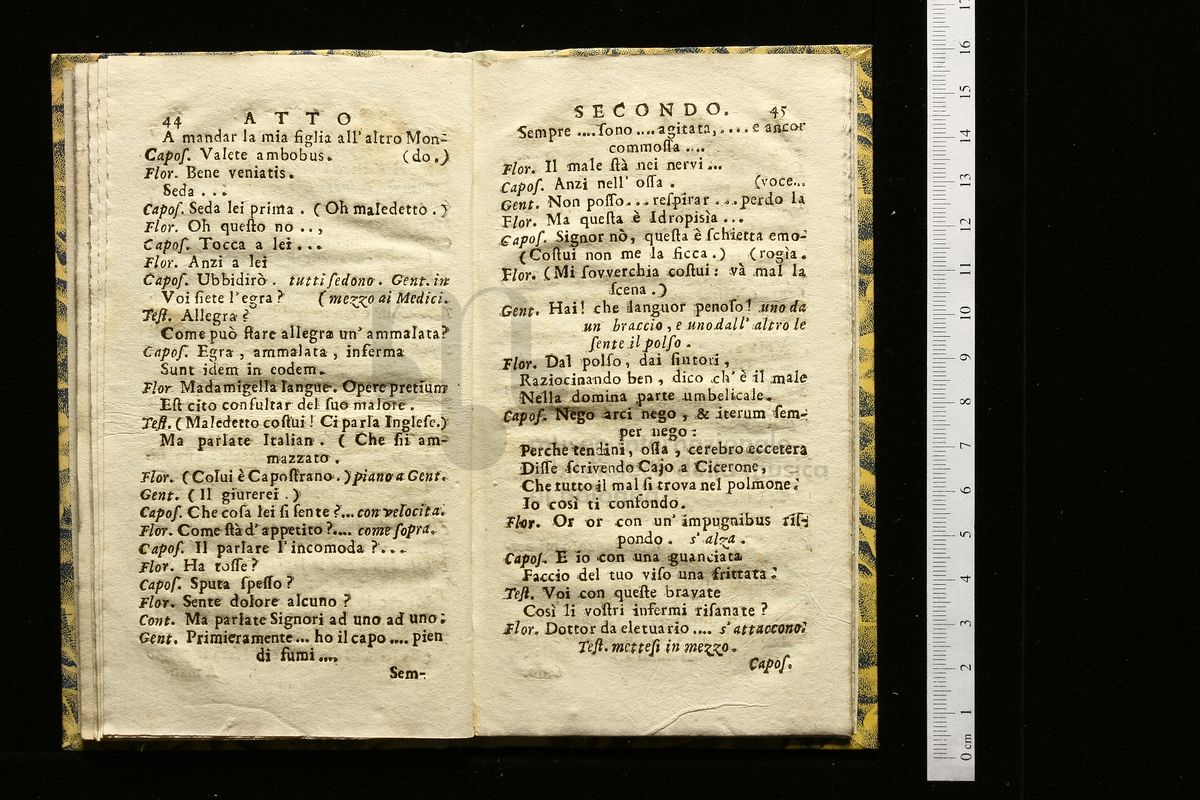 44 ATTO
A mandar la mia figlia all' altro Mon-
Capoſ. Valete ambobus. (do.)
Flor. Bene veniatis.
Seda . . .
Capoſ. Seda lei prima . ( Oh maledetto . )
Flor. Oh queſto no . . ,
Capoſ. Tocca a lei . . .
Flor. Anzi a lei
Capoſ. Ubbidirò . tutti ſedono . Gent. in
Voi ſiete l'egra ? ( mezzo ai Medici.
Teſt. Allegra ?
Come può ſtare allegra un' ammalata?
Capoſ. Egra , ammalata , inferma
Sunt idem in eodem.
Flor Madamigella langue. Opere pretium
Eſt cito conſultar del ſuo malore .
Teſt. ( Maledetto coſtui ! Ci parla Ingleſe.)
Ma parlate Italian . ( Che ſii am-
mazzato .
Flor. ( Colui è Capoſtrano . ) piano a Gent.
Gent. ( Il giurerei . )
Capoſ. Che coſa lei ſi ſente ?... con velocita.
Flor. Come ſtà d'appetito ?.... come ſopra.
Capoſ. Il parlare l'incomoda ? . . .
Flor. Ha toſſe ?
Capoſ. Sputa ſpeſſo ?
Flor. Sente dolore alcuno ?
Cont. Ma parlate Signori ad uno ad uno:
Gent. Primieramente ... ho il capo .... pien
di fumi ....
Sem-
SECONDO. 45
Sempre .... ſono .... agitata, .... e ancor
commoſſa ....
Flor. Il male ſtà nei nervi ...
Capoſ. Anzi nell' oſſa . (voce...
Gent. Non poſſo ... reſpirar ... perdo la
Flor. Ma queſta è Idropisìa ...
Capoſ. Signor nò, queſta è ſchietta emo-
( Coſtui non me la ficca . ) (rogìa.
Flor. ( Mi ſovverchia coſtui : và mal la
ſcena . )
Gent. Hai ! che languor penoſo ! uno da
un braccio , e uno dall' altro le
ſente il polſo .
Flor. Dal polſo , dai ſintori ,
Raziocinando ben , dico ch' è il male
Nella domina parte umbelicale.
Capoſ. Nego arci nego , & iterum ſem-
per nego :
Perche tendini, oſſa , cerebro eccetera
Diſſe ſcrivendo Cajo a Cicerone,
Che tutto il mal ſi trova nel polmone:
Io così ti confondo.
Flor. Or or con un' impugnibus riſ-
pondo . s' alza .
Capoſ. E io con una guanciata
Faccio del tuo viſo una frittata :
Teſt. Voi con queſte bravate
Così li voſtri infermi riſanate ?
Flor. Dottor da eletuario .... s' attaccono:
Teſt. metteſi in mezzo .
Capoſ.
0 cm 1 2 3 4 5 6 7 8 9 10 11 12 13 14 15 16 17